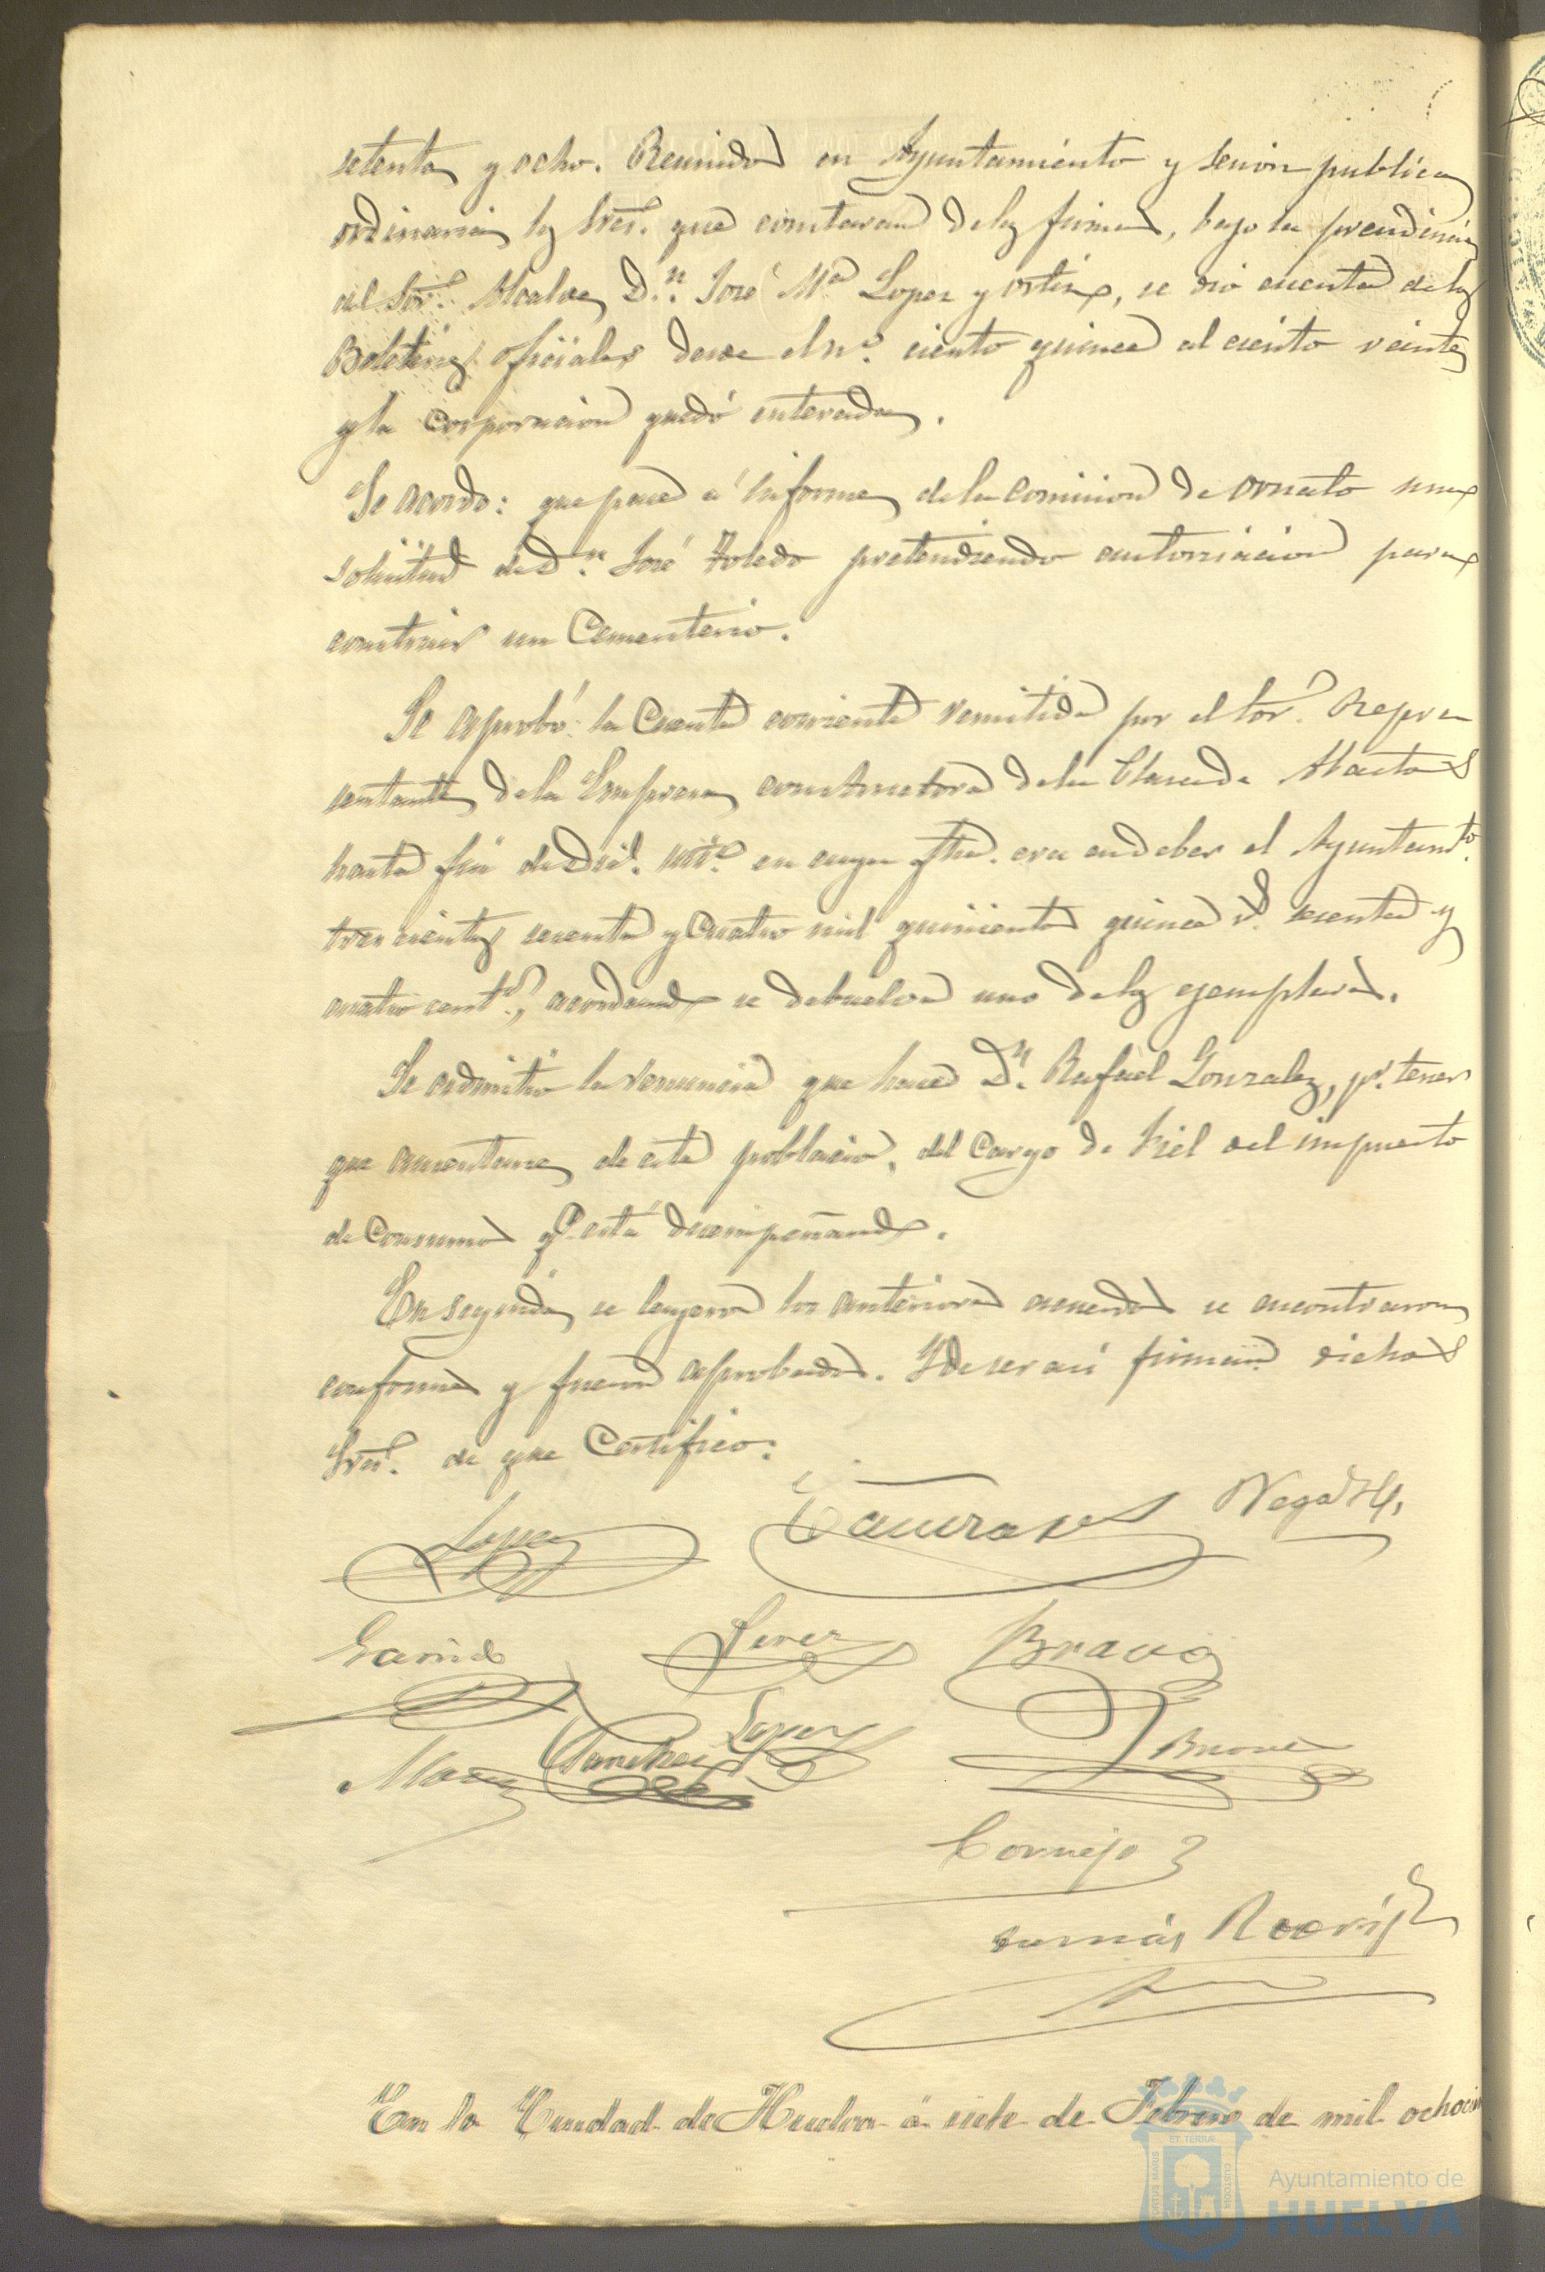 setenta y ocho. Reunidos en Ayuntamiento y sesion publica
ordinaria los Sres. que constaran de las firmas, bajo la presidencia
del Sor. Alcalde, D.n José Ma Lopez y Ortiz, se dio cuenta de los
Boletines oficiales desde el no. ciento quince al ciento veinte,
y la corporacion quedó enterada.
Se acordo: que pase á informe de la comision de ornato una
solicitud de D.n José Toledo pretendiendo autorizacion para
construir un Cementerio.
Se aprobó la Cuenta corriente remitida por el Sor. Repre
sentante de la Empresa constructora de la Plaza de Abastos
hasta fin de Dic. en cuya fha. era en deber el Ayuntamto.
trescientos sesenta y cuatro mil quinientos quince rs. sesenta y
cuatro cents., acordando se debuelva uno de los ejemplares.
Se admitió la renuncia que hace D.n Rafael Gonzalez, pr. tener
que ausentarse de esta poblacion, del cargo de Fiel del impuesto
de Consumos q.e está desempeñando.
En seguida se leyeron los anteriores acuerdos se encontraron
conformes y fueron aprobados. Y de ser asi firman dichos
Sres. de que Certifico.
Lopez
Garrido Perez Bravo
Sanchez Lopez
Cornejo
Tomás Rodríg
En la Ciudad de Huelva á siete de Febrero de mil ochocien
Ayuntamiento de
HUELVA